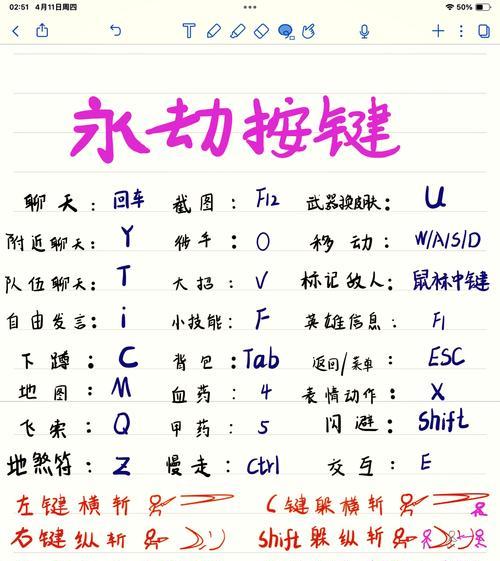 02:51 4月11日周四 50%
永劫按键
聊天：回车 截图：F12 武器换皮肤：U
附近聊天：Y 徒手：O 移动：W/A/S/D
队伍聊天：T 大招：V 标记敌人：鼠标中键
自由发言：i 小技能：F 英雄信息：F1
下蹲：C 背包：Tab 返回/菜单：ESC
地图：M 血药：4 表情动作：X
飞索：Q 甲药：5 闪避：Shift
地煞符：Z 慢走：Ctrl 交互：E
左键横斩 C键躲横斩
右键纵斩 Shift躲纵斩